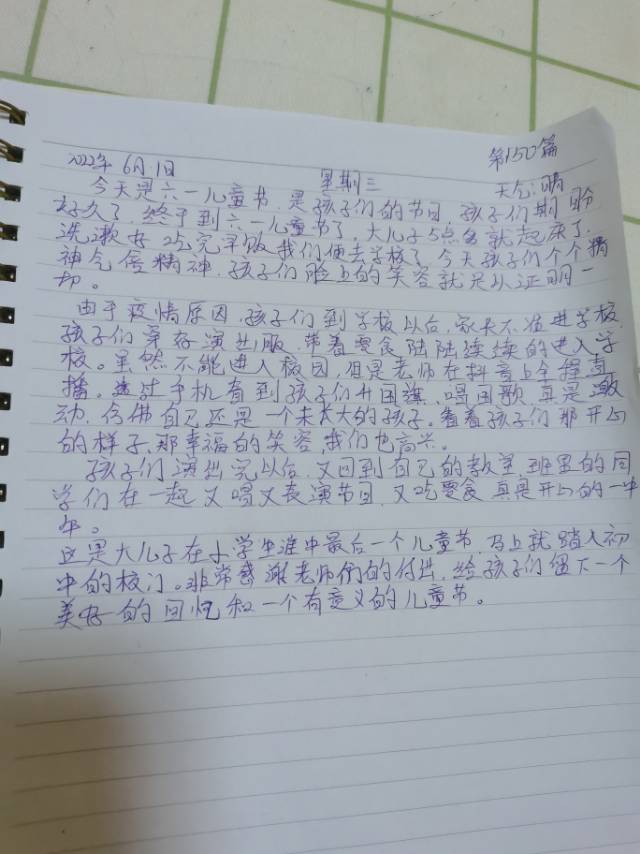 第150篇
2022年6月1日 星期三 天气:晴
今天是六一儿童节,是孩子们的节日,孩子们期盼
好久了,终于到六一儿童节了,大儿子5点多就起床了,
洗漱好吃完早饭我们便去学校了,今天孩子们个个精
神气舍精神,孩子们脸上的笑容就是以证明一
切。
由于疫情原因,孩子们到学校以后,家长不准进学校,
孩子们穿好演出服,带着零食陆陆续续的进入学
校。虽然不能进入校园,但是老师在抖音上全程直
播。透过手机看到孩子们升国旗、唱国歌,真是激
动,仿佛自己还是一个未长大的孩子。看着孩子们那开心
的样子,那幸福的笑容,我们也高兴。
孩子们演出完以后,又回到自己的教室,班里的同
学们在一起又唱又表演节目,又吃零食,真是开心的一中
午。
这是大儿子在小学生涯中最后一个儿童节,马上就踏入初
中的校门。非常感谢老师們的付出,给孩子们留下一个
美好的回忆和一个有意义的儿童节。